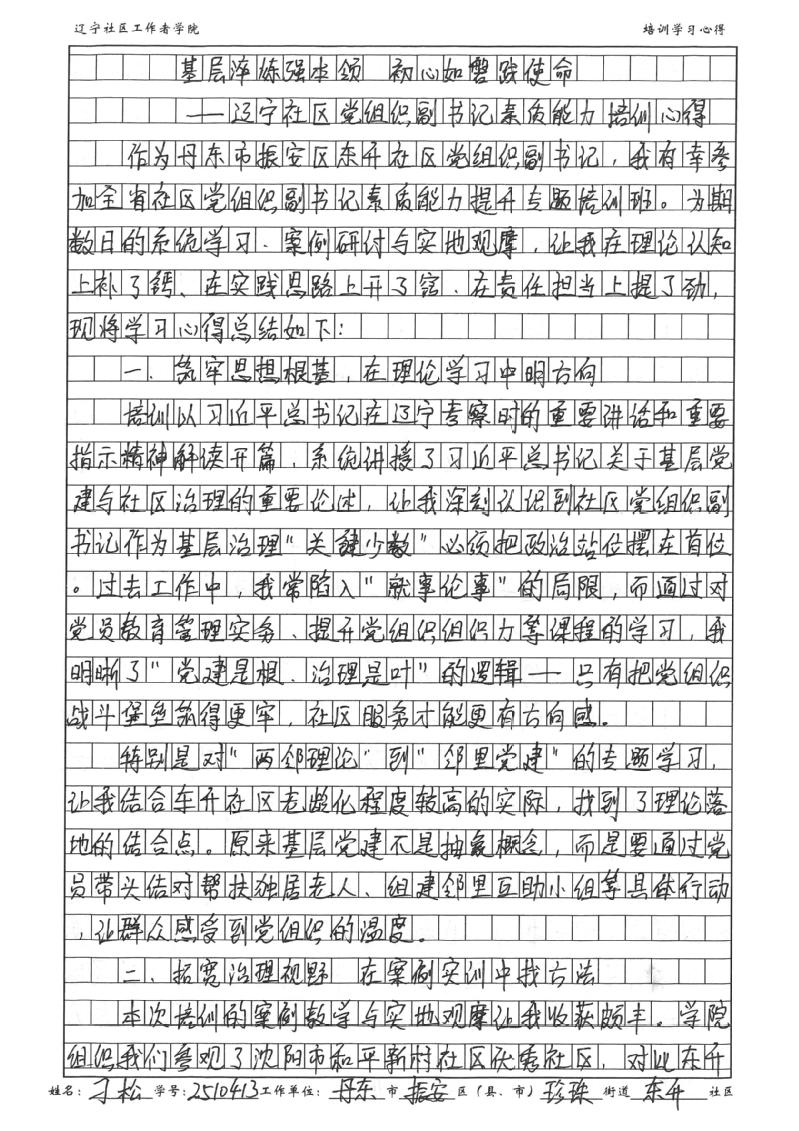 辽宁社区工作者学院 培训学习心得
基层淬炼强本领 初心如磐践使命
——辽宁社区党组织副书记素质能力培训心得
作为丹东市振安区东升社区党组织副书记，我有幸参
加全省社区党组织副书记素质能力提升专题培训班。为期
数日的系统学习、案例研讨与实地观摩，让我在理论认知
上补了钙、在实践思路上开了窍、在责任担当上提了劲，
现将学习心得总结如下：
一、筑牢思想根基，在理论学习中明方向
培训以习近平总书记在辽宁考察时的重要讲话和重要
指示精神解读开篇，系统讲授了习近平总书记关于基层党
建与社区治理的重要论述，让我深刻认识到社区党组织副
书记作为基层治理“关键少数”必须把政治站位摆在首位
。过去工作中，我常陷入“就事论事”的局限，而通过对
党员教育管理实务、提升党组织组织力等课程的学习，我
明晰了“党建是根、治理是叶”的逻辑——只有把党组织
战斗堡垒筑得更牢，社区服务才能更有方向感。
特别是对“两邻理论”到“邻里党建”的专题学习，
让我结合东升社区老龄化程度较高的实际，找到了理论落
地的结合点。原来基层党建不是抽象概念，而是要通过党
员带头结对帮扶独居老人、组建邻里互助小组等具体行动
，让群众感受到党组织的温度。
二、拓宽治理视野 在案例实训中找方法
本次培训的案例教学与实地观摩让我收获颇丰。学院
组织我们参观了沈阳市和平新村社区优秀社区，对比东升
姓名：刁松 学号：2510413 工作单位：丹东市振安区（县、市）珍珠街道东升社区